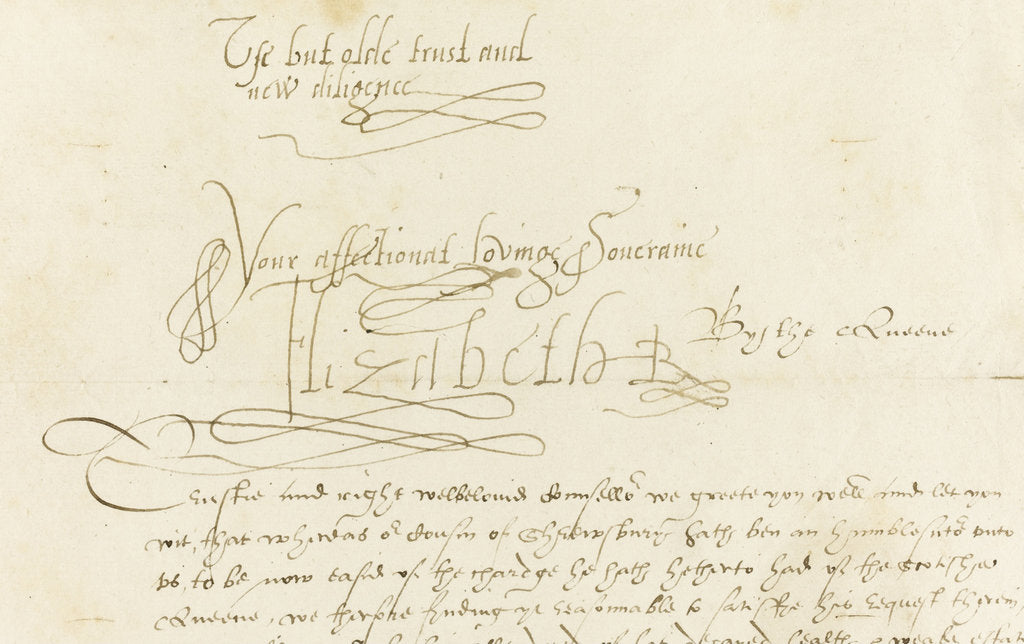 Use but olde trust and
new diligence
Your affectionat lovinge Soveraine
Elizabeth R
By the Queene
Trustie and right welbelovid Counsellor we greete you well and let you
wit, that wheras or Cousin of Shrewsbury hath ben an humble sutor unto
us, to be now easid of the chardge he hath hetherto had of the Scotishe
Queene, we therfore finding yt reasonnable to satisfie his request therein